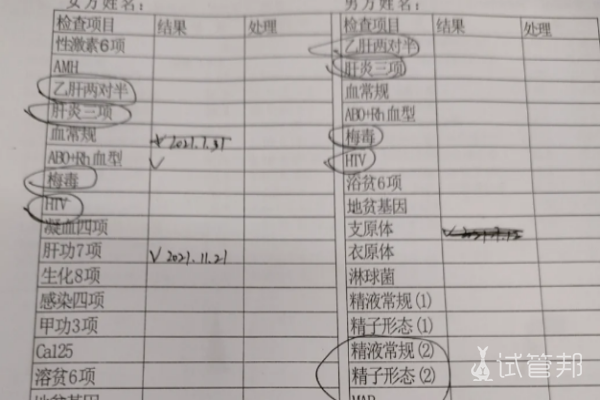 女方姓名：
检查项目 结果 处理
性激素6项
AMH
乙肝两对半
肝炎三项
血常规 √ 2021.7.31
ABO+Rh血型 √
梅毒
HIV
凝血四项
肝功7项 √ 2021.11.21
生化8项
感染四项
甲功3项
Ca125
溶贫6项
地贫基因
男方姓名：
检查项目 结果 处理
乙肝两对半
肝炎三项
血常规
ABO+Rh血型
梅毒
HIV
溶贫6项
地贫基因
支原体 √
衣原体
淋球菌
精液常规(1)
精子形态(1)
精液常规(2)
精子形态(2)
MAR
试管邦